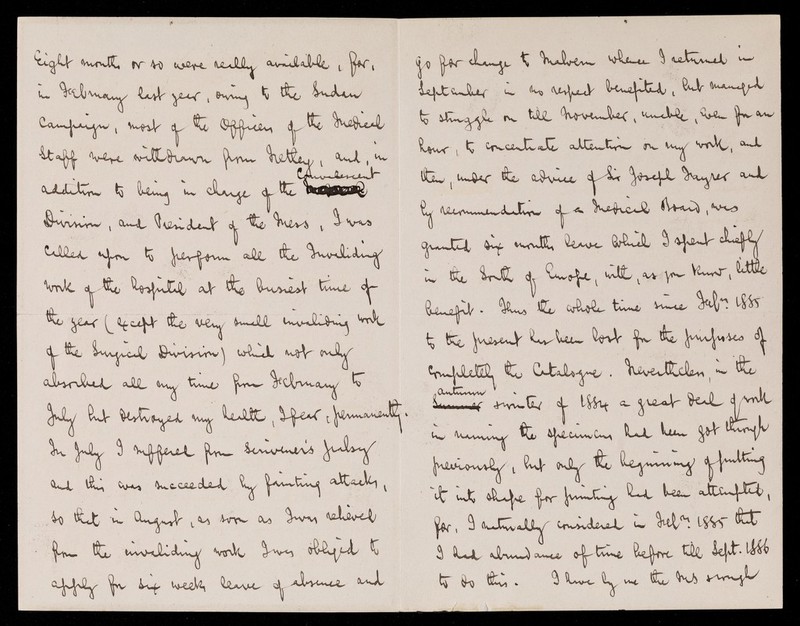 Eight months or so were really available, for,
in February last year, owing to the Sudan
Campaign, most of the Officers of the Medical
Staff were withdrawn from Netley, and, in
addition to being in charge of the Convalescent
Division, and President of the Mess, I was
called upon to perform all the Invaliding
work of the hospital at the busiest time of
the year (except the very small invaliding work
of the Surgical Division) which not only
absorbed all my time from February to
July but destroyed my health, I fear, permanently.
In July I suffered from Scrivener's palsy
and this was succeeded by fainting attacks,
so that in August, as soon as I was relieved
from the invaliding work I was obliged to
apply for six weeks leave of absence and
go for change to Malvern whence I returned in
September in no respect benefited, but managed
to struggle on till November, unable, even for an
hour, to concentrate attention on my work, and
then, under the advice of Sir Joseph Fayrer and
by recommendation of a Medical Board, was
granted six months leave which I spent chiefly
in the South of Europe, with, as you know, little
benefit. Thus the whole time since Feby. 1885
to the present has been lost for the purposes of
completely the Catalogue. Nevertheless, in the
autumn & winter of 1884 a great deal of work
in naming the specimens had been got through
previously, but only the beginning of putting
it into shape for printing had been attempted,
for, I naturally considered in Feby. 1885 that
I had abundance of time before till Sept. 1886
to do this. I have by me the MS & rough